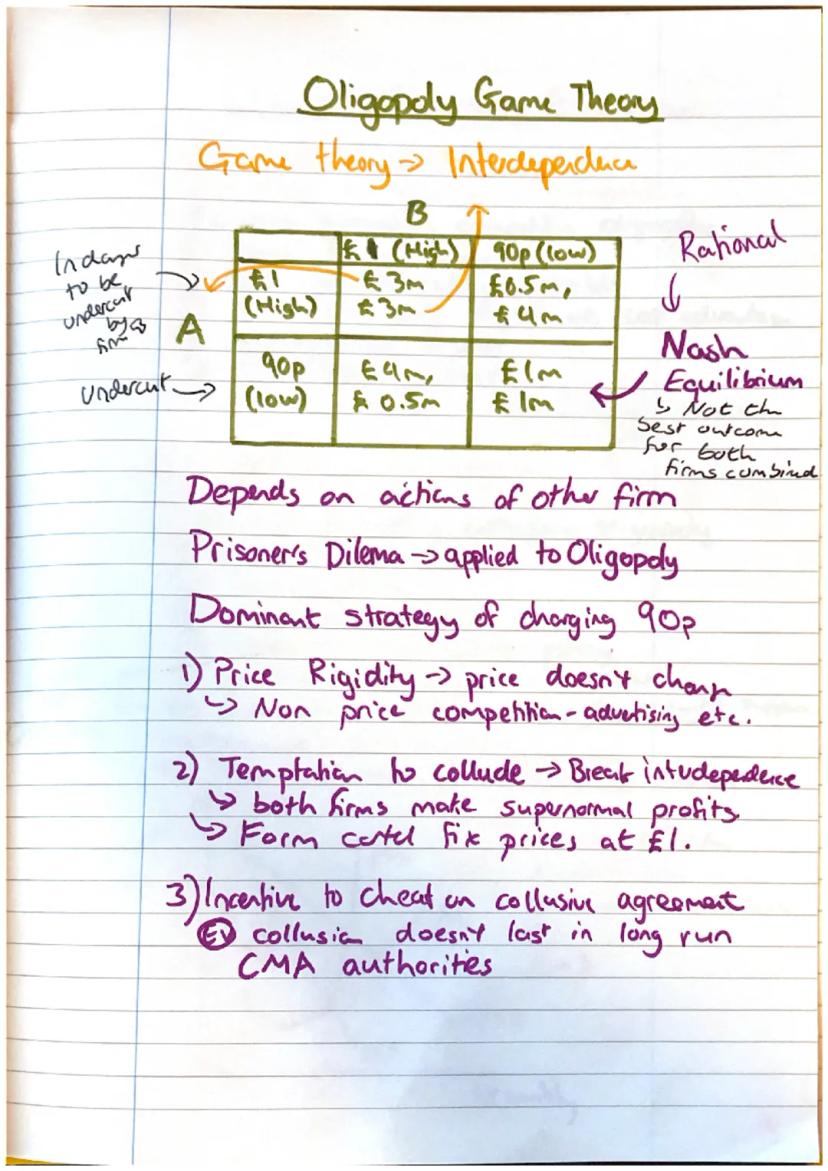 Oligopoly Game Theory
Game theory → Interdependence
B
£1 (High) 90p (low)
£1 (High) £3m £3m £0.5m, £4m
A
90p (low) £4m, £0.5m £1m £1m
In danger
to be
undercut
by
firm B
undercut →
Rational
↓
Nash
Equilibrium
↳ Not the
best outcome
for both
firms combined
Depends on actions of other firm
Prisoner's Dilema → applied to Oligopoly
Dominant strategy of charging 90p
1) Price Rigidity → price doesn't change
↳ Non price competition - advertising etc.
2) Temptation to collude → Break interdependence
↳ both firms make supernormal profits.
↳ Form cartel fix prices at £1.
3) Incentive to cheat on collusive agreement
EV collusion doesn't last in long run
CMA authorities